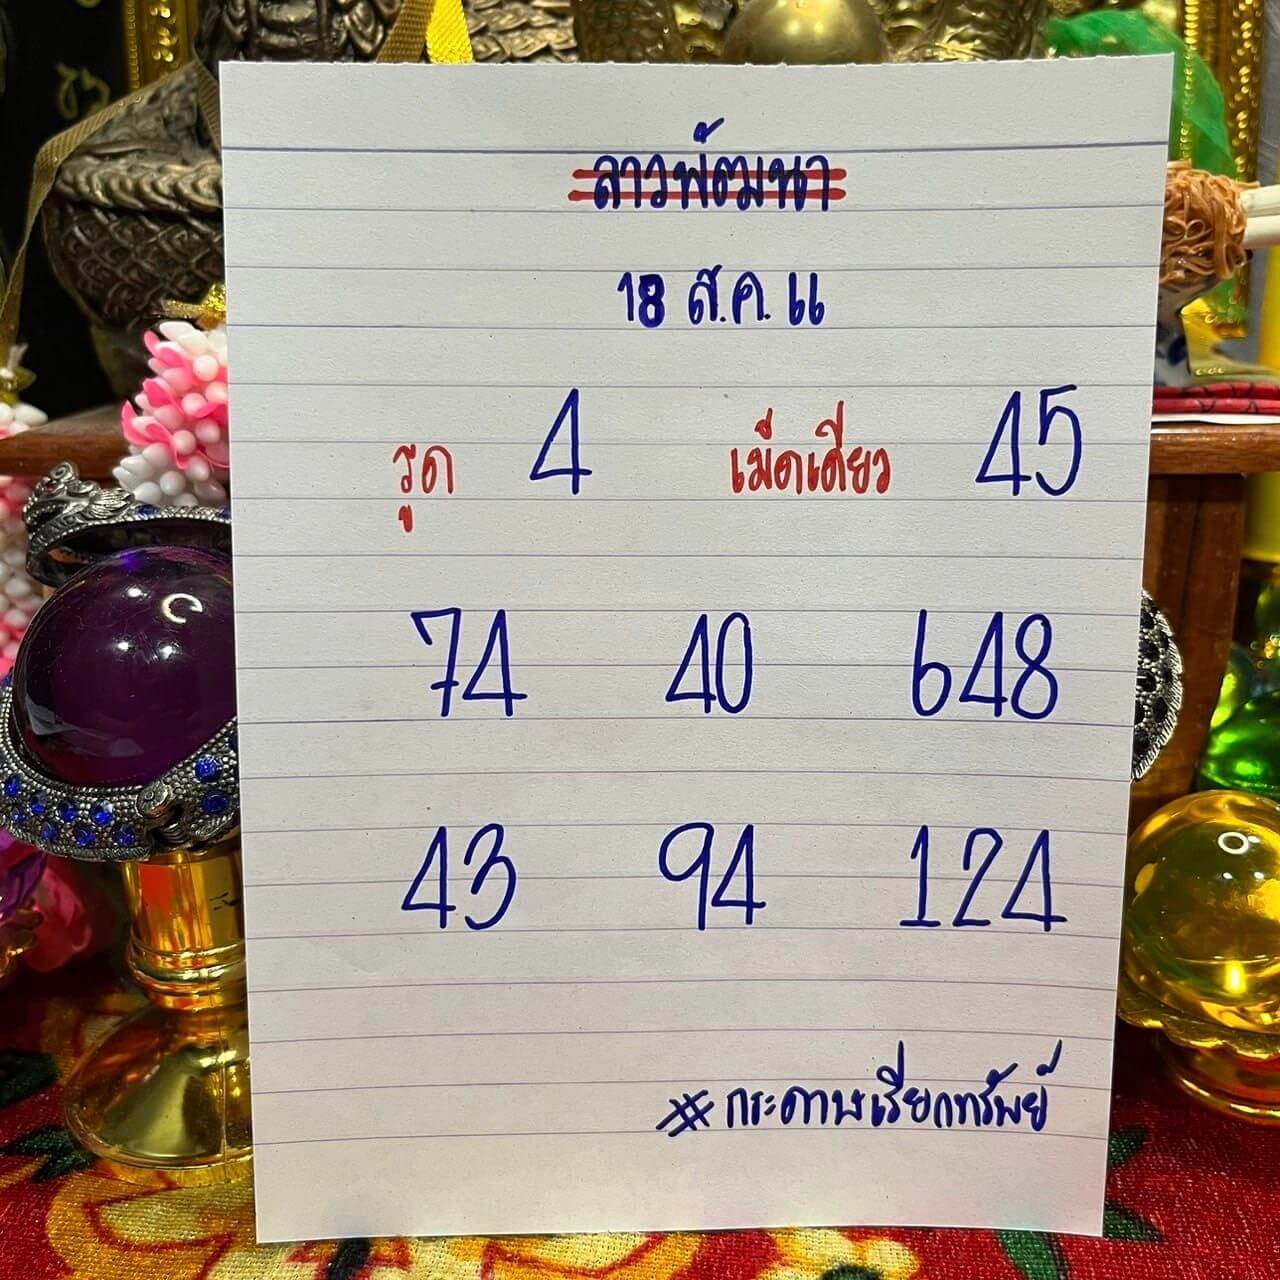 ลาวพัฒนา
18 ส.ค. 61
รูด 4 เม็ดเดียว 45
74 40 648
43 94 124
#กระดาษเรียกทรัพย์